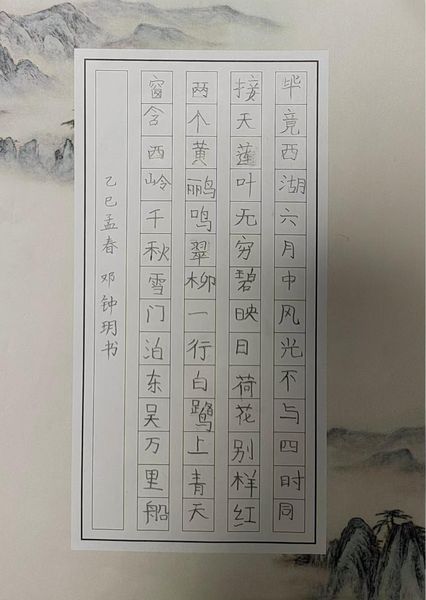 毕竟西湖六月中风光不与四时同
接天莲叶无穷碧映日荷花别样红
两个黄鹂鸣翠柳一行白鹭上青天
窗含西岭千秋雪门泊东吴万里船
乙巳孟春 邓钟玥书